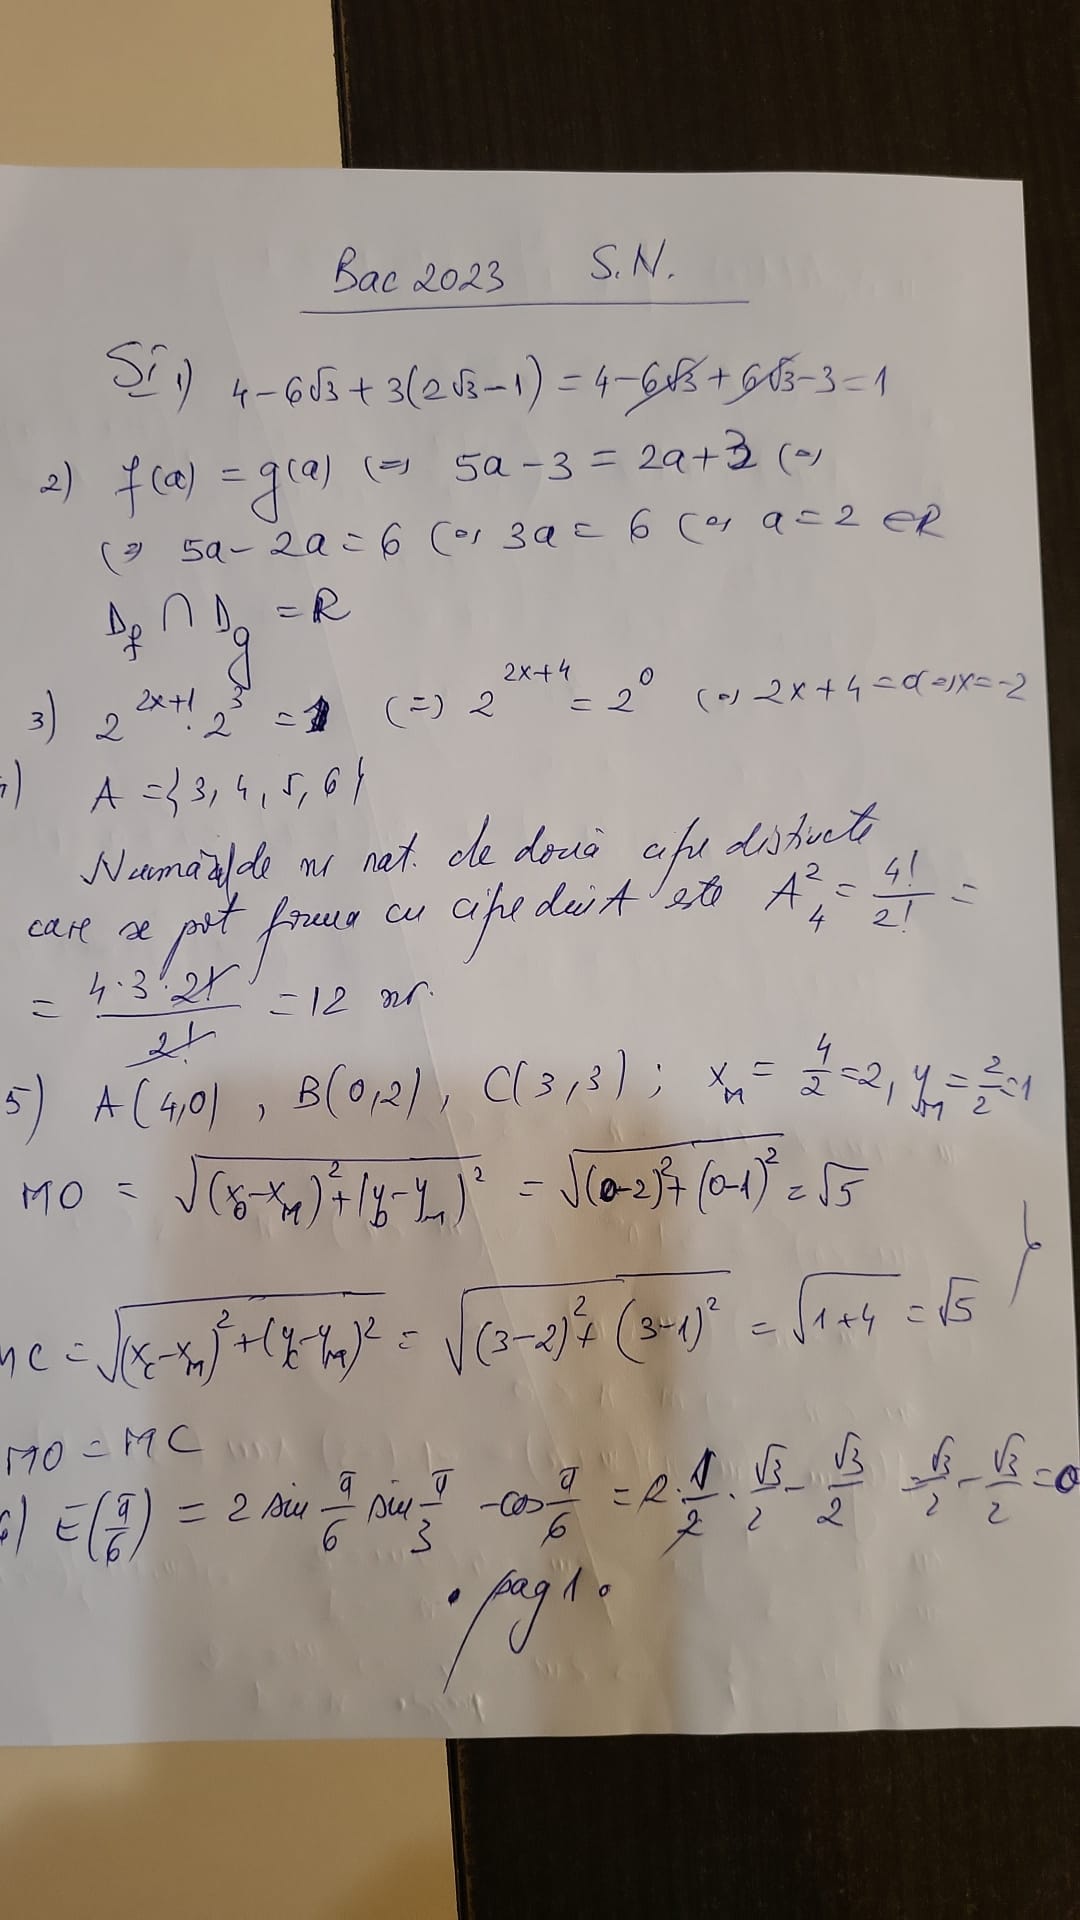 Bac 2023 S.N.
SI 1) 4-6√3+3(2√3-1)=4-6√3+6√3-3=1
2) f(a)=g(a) (=) 5a-3=2a+3 (=)
(=) 5a-2a=6 (=) 3a=6 (=) a=2 ∈R
D_f ∩ D_g =R
3) 2^{2x+1}·2^3=1 (=) 2^{2x+4}=2^0 (=) 2x+4=0=)x=-2
) A={3,4,5,6}
Numărul de nr nat. de două cifre distincte
care se pot forma cu cifre din A este A_4^2=4!/2!=
=4·3·2!/2!=12 nr.
5) A(4,0), B(0,2), C(3,3); x_M=4/2=2, y_M=2/2=1
MO=√((x_0-x_M)^2+(y_0-y_M)^2)=√((0-2)^2+(0-1)^2)=√5
MC=√((x_C-x_M)^2+(y_C-y_M)^2)=√((3-2)^2+(3-1)^2)=√(1+4)=√5
MO=MC
6) E(π/6)=2 sin π/6 sin π/3 -cos π/6=2·1/2·√3/2-√3/2=√3/2-√3/2=0
• pag 1 •